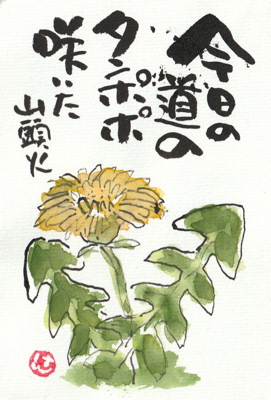 今日の
道の
タンポポ
咲いた
山頭火